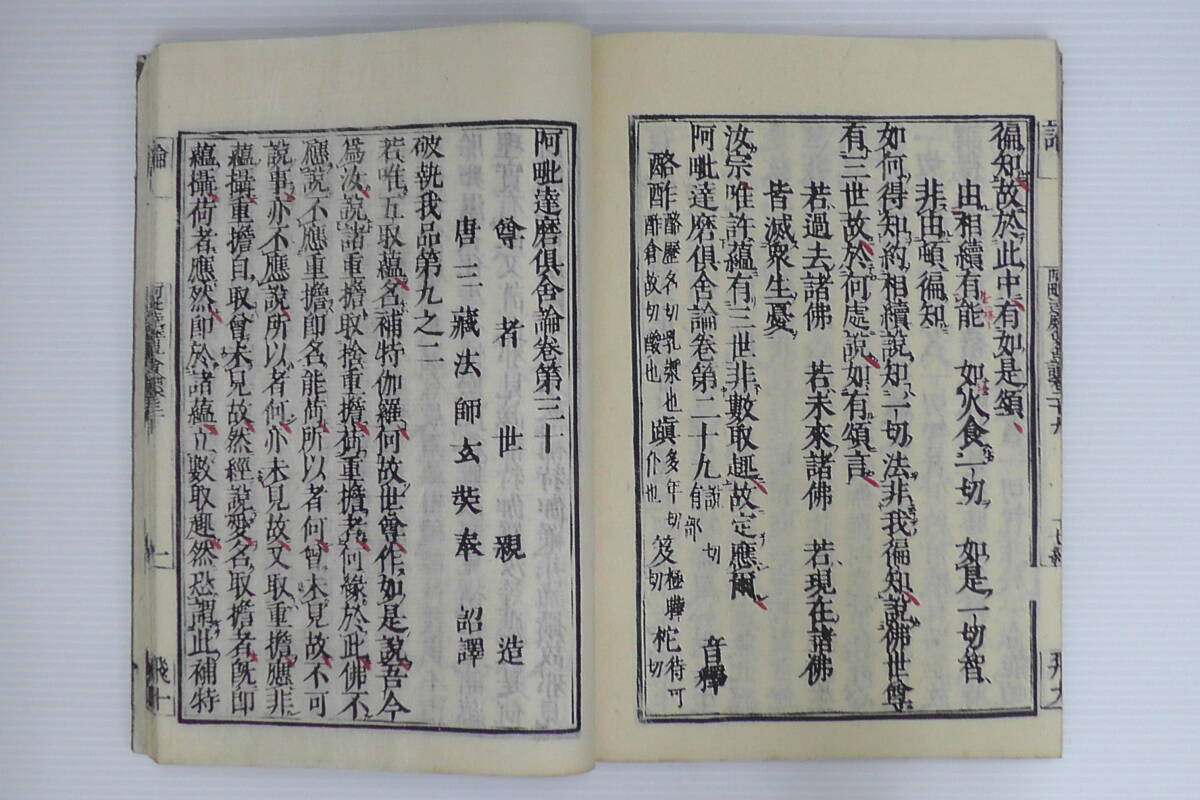 徧知故於此中有如是頌
由相續有能　如火食一切　如是一切智
非由頓徧知
如何得知約相續說知一切法非我徧知說佛世尊
有三世故於何處說如有頌言
若過去諸佛　若未來諸佛　若現在諸佛
皆滅衆生憂
汝宗唯許蘊有三世非數取趣故定應爾
阿毗達磨俱舍論卷第二十九 說切有部
音釋
酪酢 酪歷各切乳漿也 酢倉故切酸也 瞋 多年切 仆也 笈 極曄切 柁 待可切
阿毗達磨俱舍論卷第三十
尊者世親　造
唐三藏法師玄奘奉　詔譯
破執我品第九之二
若唯五取蘊名補特伽羅何故世尊作如是說吾今
爲汝說諸重擔取捨重擔荷重擔者何緣於此佛不
應說不應重擔即名能荷所以者何曾未見故不可
說事亦不應說所以者何亦未見故又取重擔應非
蘊攝重擔自取曾未見故然經說愛名取擔者旣即
蘊攝荷者應然即於諸蘊立數取趣然恐謂此補特
論